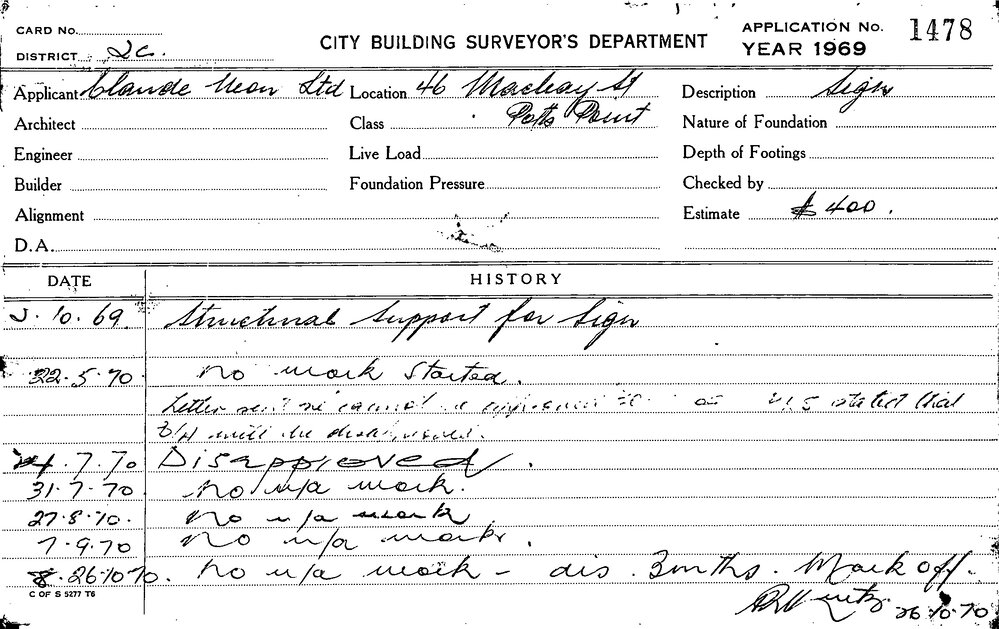 CARD No.
DISTRICT
CITY BUILDING SURVEYOR'S DEPARTMENT
APPLICATION No. 1478
YEAR 1969
Applicant Claude Neon Ltd Location 46 Macleay St Description Sign
Architect Class Potts Point Nature of Foundation
Engineer Live Load Depth of Footings
Builder Foundation Pressure Checked by
Alignment Estimate $ 400.
D.A.
DATE HISTORY
10.69. Structural Support for Sign
22.5.70 No work started.
Letter sent stated that
B/A will be
7.70 Disapproved.
31.7.70 No u/a work.
27.8.70. No u/a work.
7.9.70 No u/a work.
26.10.70. No u/a work - dis. 3mths. Mark off.
26.10.70
C OF S 5277 T6